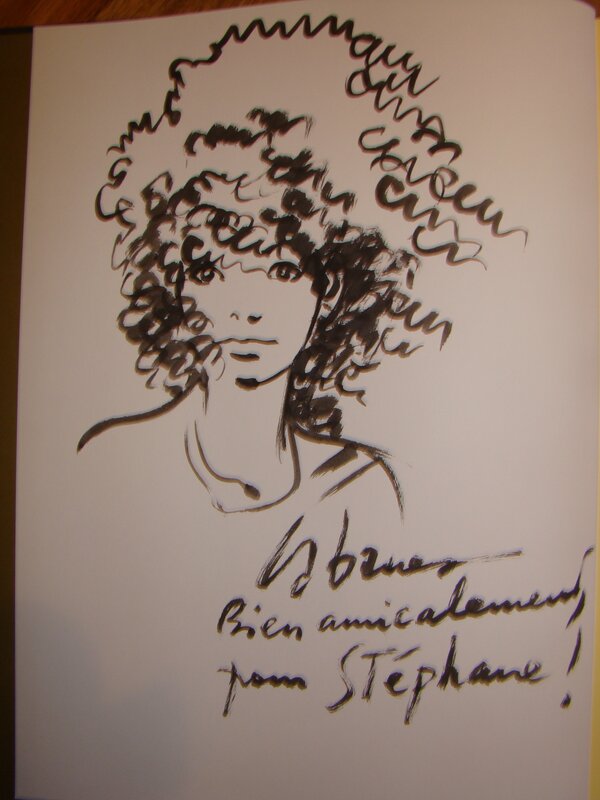 Bien amicalement,
pour Stéphane !